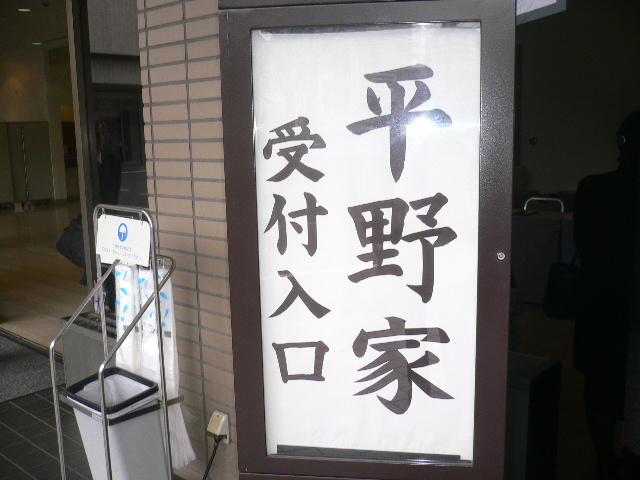 平野家
受付入口